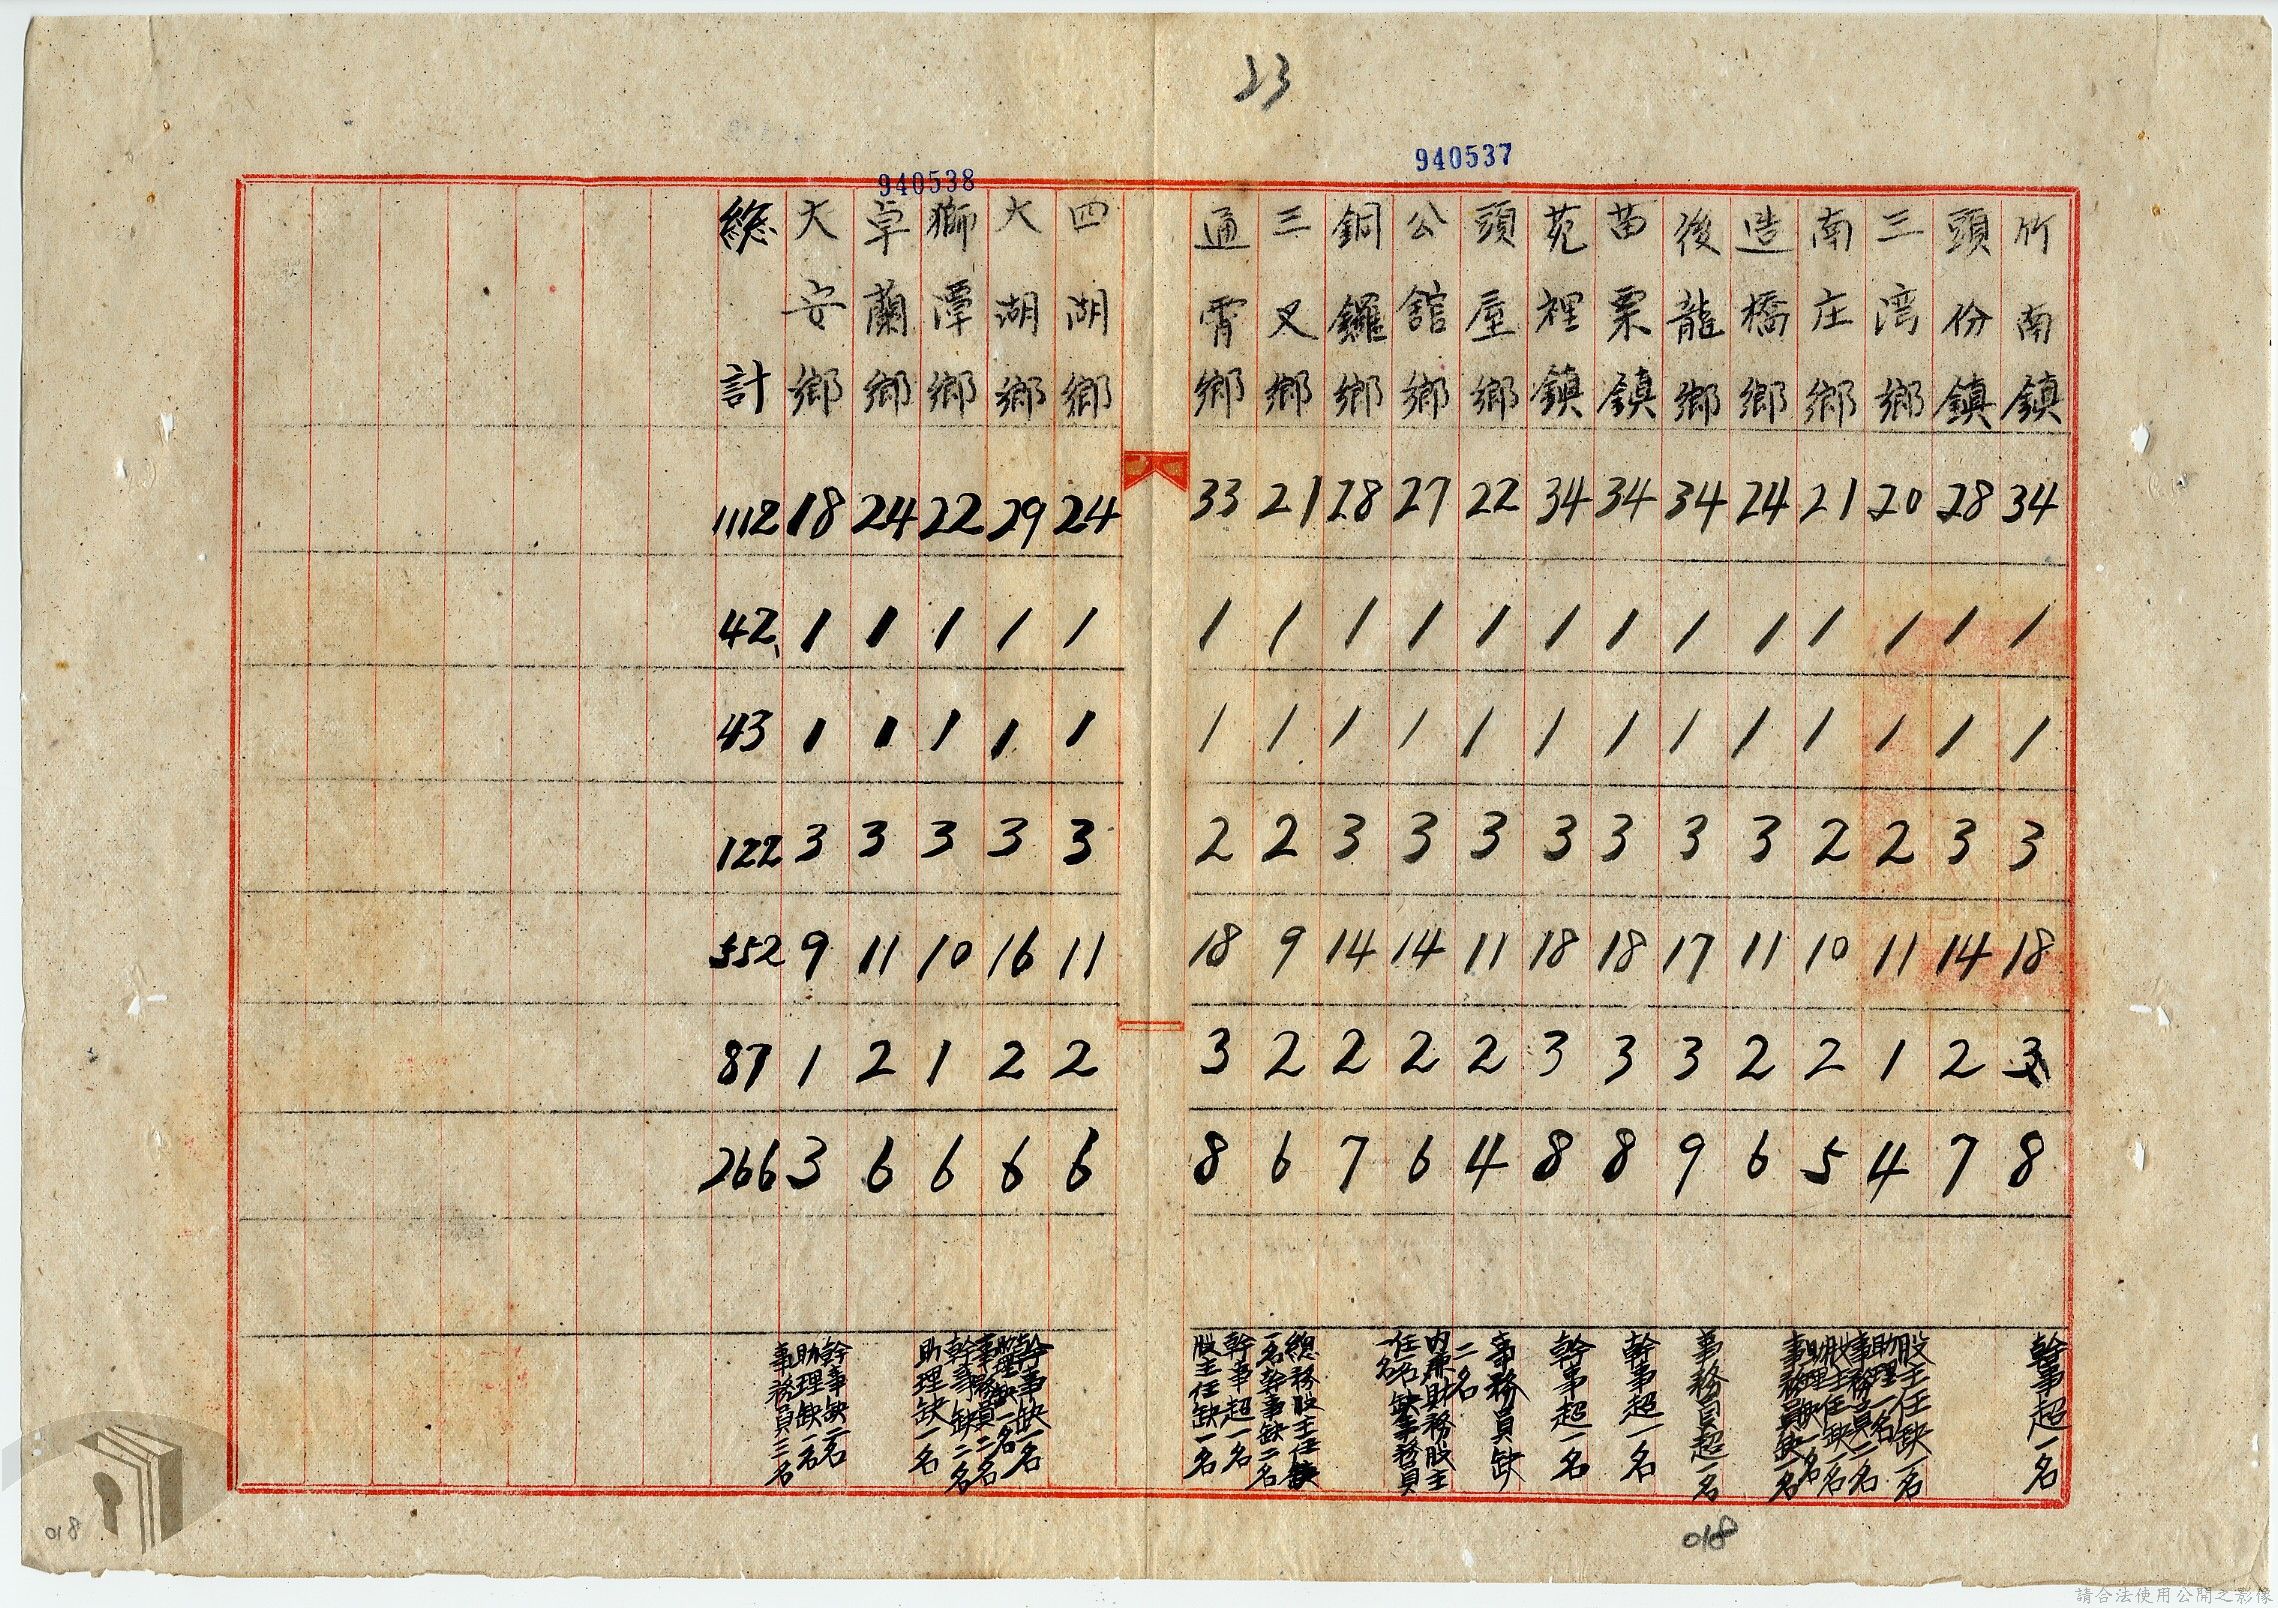 23
940537
940538
竹南鎮 34 1 1 3 18 3 8 幹事超一名
頭份鎮 28 1 1 3 14 2 7
三湾鄉 20 1 1 2 11 1 4 股主任缺一名 助理一名 事務員二名
南庄鄉 21 1 1 2 10 2 5 股主任缺一名 助理缺一名 事務員缺一名
造橋鄉 24 1 1 3 11 2 6
後龍鄉 34 1 1 3 17 3 9 事務員超一名
苗栗鎮 34 1 1 3 18 3 8 幹事超一名
苑裡鎮 34 1 1 3 18 3 8 幹事超一名
頭屋鄉 22 1 1 3 11 2 4 事務員缺二名
公館鄉 27 1 1 3 14 2 6 內兼財務股主任一名缺事務員
銅鑼鄉 28 1 1 3 14 2 7
三叉鄉 21 1 1 2 9 2 6 總務股主任缺一名幹事缺二名
通霄鄉 33 1 1 2 18 3 8 幹事超一名 股主任缺一名
四湖鄉 24 1 1 3 11 2 6
大湖鄉 29 1 1 3 16 2 6 幹事缺一名
獅潭鄉 22 1 1 3 10 1 6 幹事缺二名 助理缺一名
卓蘭鄉 24 1 1 3 11 2 6
大安鄉 18 1 1 3 9 1 3 幹事缺二名 助理缺一名 事務員三名
總計 1112 42 43 122 552 87 266
018
018
請合法使用公開之影像